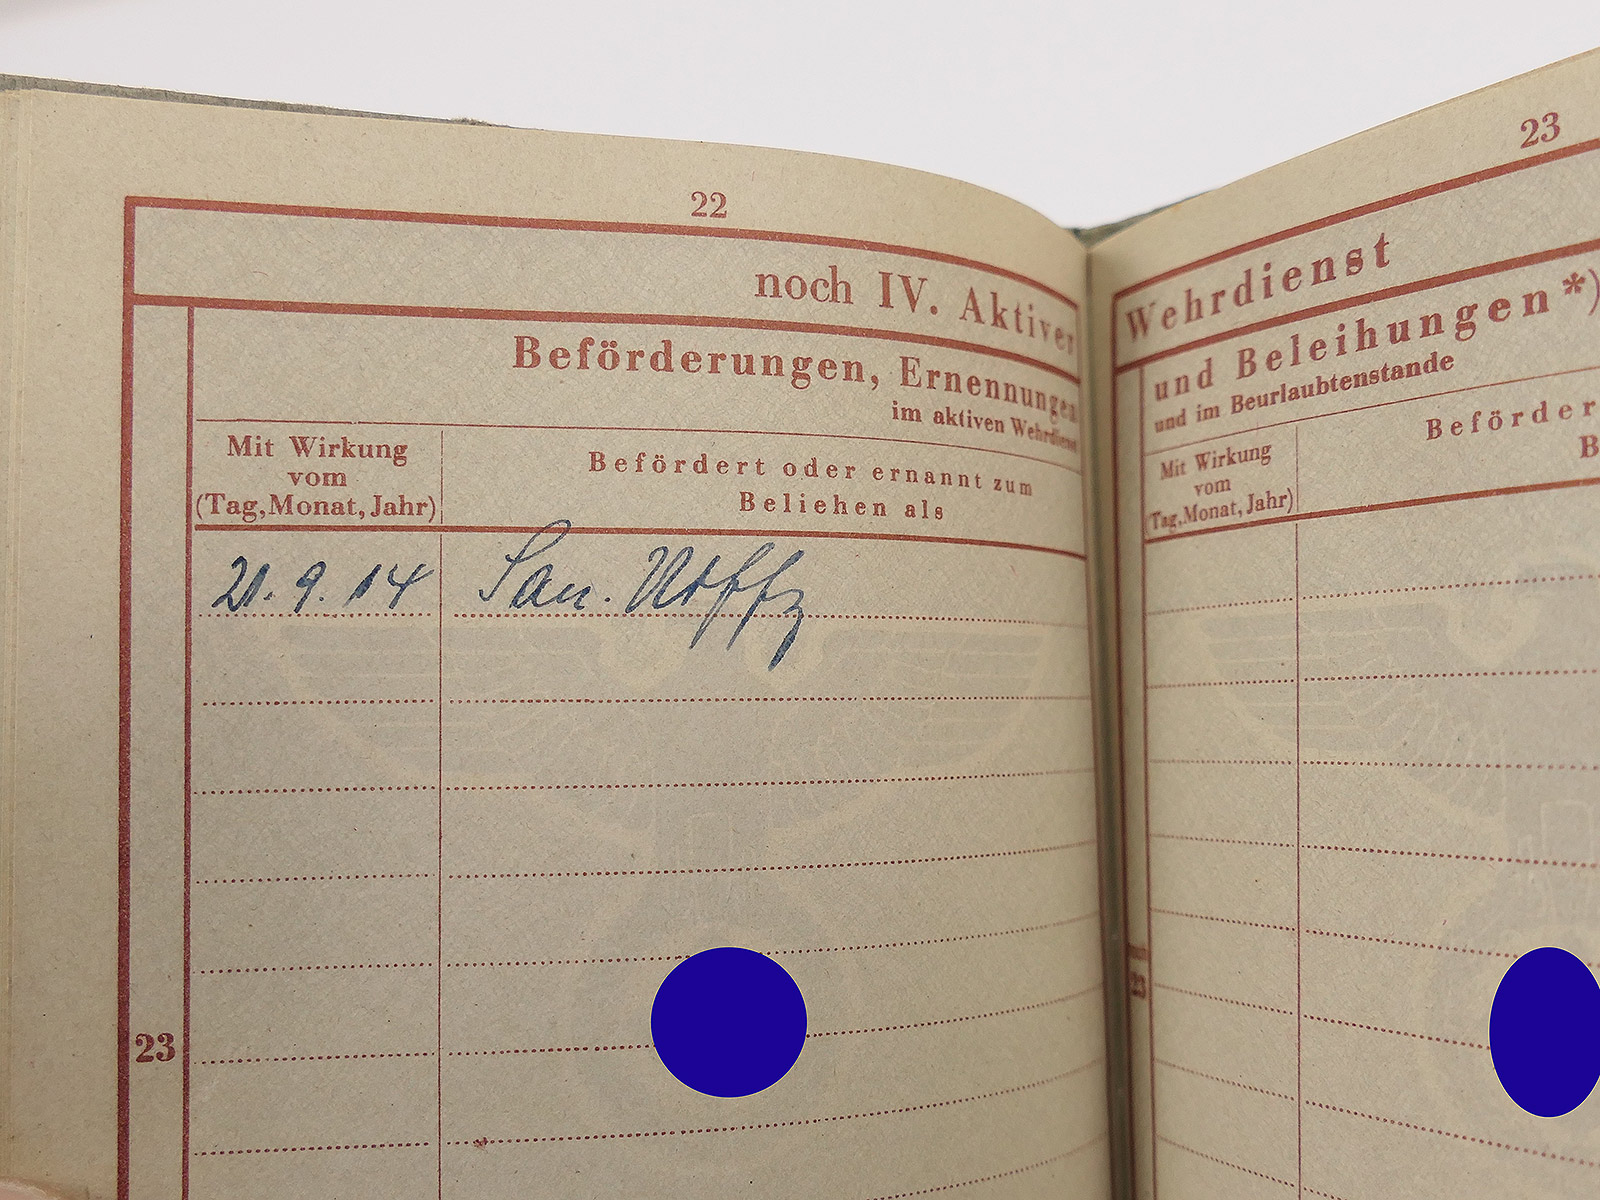 22
noch IV. Aktiver
Beförderungen, Ernennungen
im aktiven Wehrdienst
Mit Wirkung
vom
(Tag, Monat, Jahr)
Befördert oder ernannt zum
Beliehen als
21. 9. 14
San. Utffz
23
23
Wehrdienst
und Beleihungen*)
und im Beurlaubtenstande
Mit Wirkung
vom
(Tag, Monat, Jahr)
Beförder
B
23